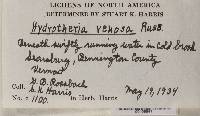 LICHENS OF NORTH AMERICA
DETERMINED BY STUART K. HARRIS
Hydrotheria venosa Russ.
Beneath swiftly running water in Cold Brook
Searsburg, Bennington County
Vermont
Coll. G. B. Rossbach
S. K. Harris May 19, 1934
No. 1100. in Herb. Harris